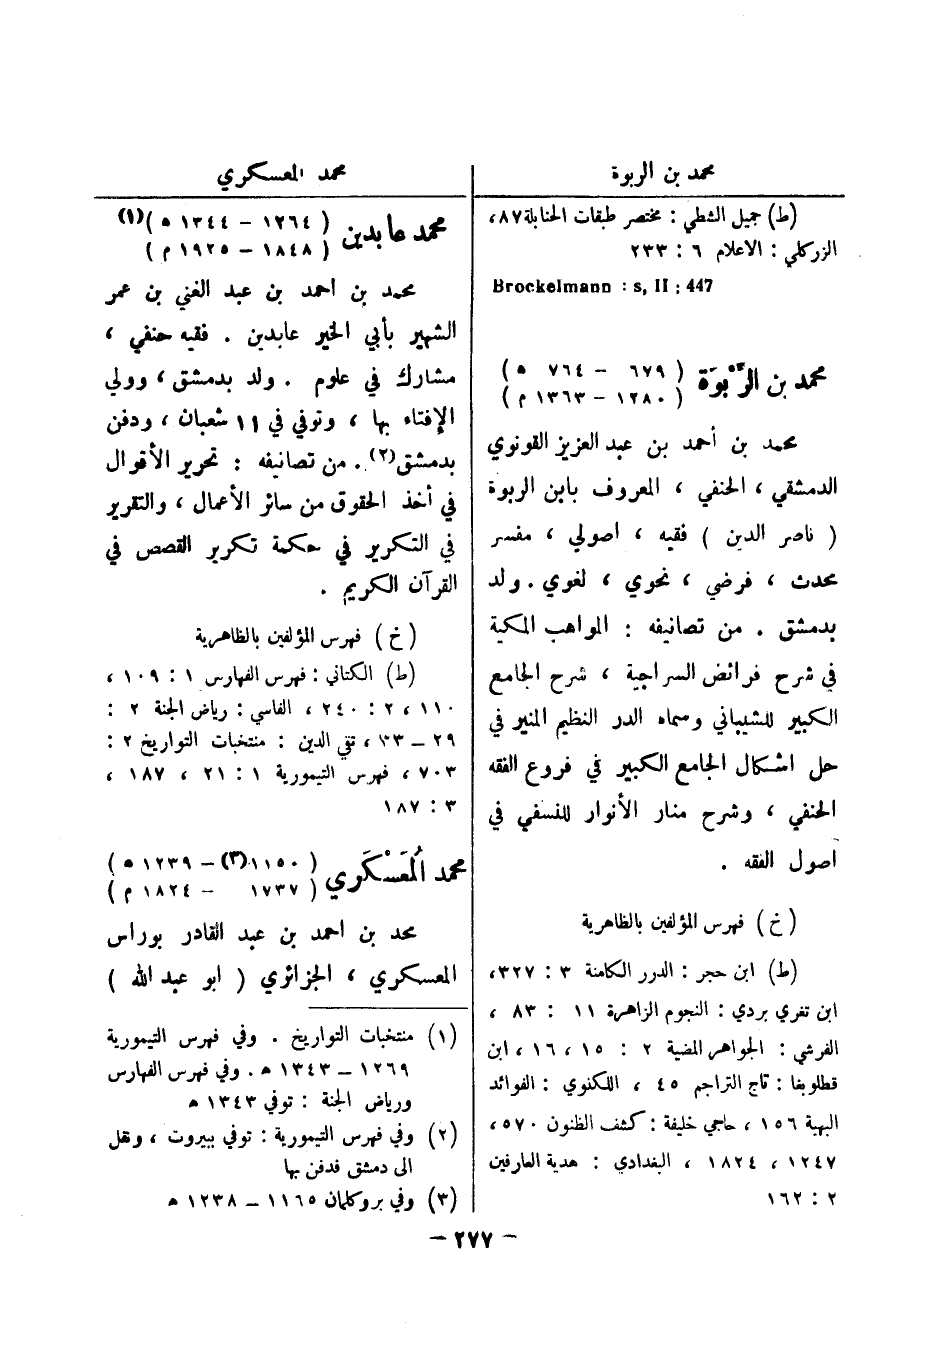 محمد بن الربوة
(ط) جميل الشطي : مختصر طبقات الحنابلة ٨٧،
الزركلي : الاعلام ٦ : ٢٣٣
Brockelmann : s, II : 447
محمد بن الرَّبْوَة ( ٦٧٩ – ٧٦٤ ه )
( ١٢٨٠ – ١٣٦٣ م )
محمد بن أحمد بن عبد العزيز القونوي
الدمشقي ، الحنفي ، المعروف بابن الربوة
( ناصر الدين ) فقيه ، اصولي ، مفسر
محدث ، فرضي ، نحوي ، لغوي . ولد
بدمشق . من تصانيفه : المواهب المكية
في شرح فرائض السراجية ، شرح الجامع
الكبير للشيباني وسماه الدر النظيم المنير في
حل اشكال الجامع الكبير في فروع الفقه
الحنفي ، وشرح منار الأنوار للنسفي في
اصول الفقه .
(خ) فهرس المؤلفين بالظاهرية
(ط) ابن حجر : الدرر الكامنة ٣ : ٣٢٧،
ابن تغري بردي : النجوم الزاهرة ١١ : ٨٣ ،
القرشي : الجواهر المضية ٢ : ١٥ ، ١٦ ، ابن
قطلوبغا : تاج التراجم ٤٥ ، اللكنوي : الفوائد
البهية ١٥٦ ، حاجي خليفة : كشف الظنون ٥٧٠،
١٢٤٧ ، ١٨٢٤ ، البغدادي : هدية العارفين
٢ : ١٦٢
محمد المعسكري
محمد عابدين ( ١٢٦٤ – ١٣٤٤ ه )(١)
( ١٨٤٨ – ١٩٢٥ م )
محمد بن أحمد بن عبد الغني بن عمر
الشهير بأبي الخير عابدين . فقيه حنفي ،
مشارك في علوم . ولد بدمشق ، وولي
الإفتاء بها ، وتوفي في ١١ شعبان ، ودفن
بدمشق(٢). من تصانيفه : تحرير الأقوال
في أخذ الحقوق من سائر الأعمال ، والتقرير
في التكرير في حكمة تكرير القصص في
القرآن الكريم .
(خ) فهرس المؤلفين بالظاهرية
(ط) الكتاني : فهرس الفهارس ١ : ١٠٩ ،
١١٠ ، ٢ : ٢٤٠ ، الفاسي : رياض الجنة ٢ :
٢٩ – ٣٣ ، تقي الدين : منتخبات التواريخ ٢ :
٧٠٣ ، فهرس التيمورية ١ : ٢١ ، ١٨٧ ،
٣ : ١٨٧
محمد المُعَسْكَري ( ١١٥٠(٣) – ١٢٣٩ ه )
( ١٧٣٧ – ١٨٢٤ م )
محمد بن احمد بن عبد القادر بوراس
المعسكري ، الجزائري ( ابو عبد الله )
(١) منتخبات التواريخ . وفي فهرس التيمورية
١٢٦٩ – ١٣٤٣ ه . وفي فهرس الفهارس
ورياض الجنة : توفي ١٣٤٣ ه
(٢) وفي فهرس التيمورية : توفي ببيروت ، ونقل
الى دمشق فدفن بها
(٣) وفي بروكلمان ١١٦٥ – ١٢٣٨ ه
– ٢٧٧ –